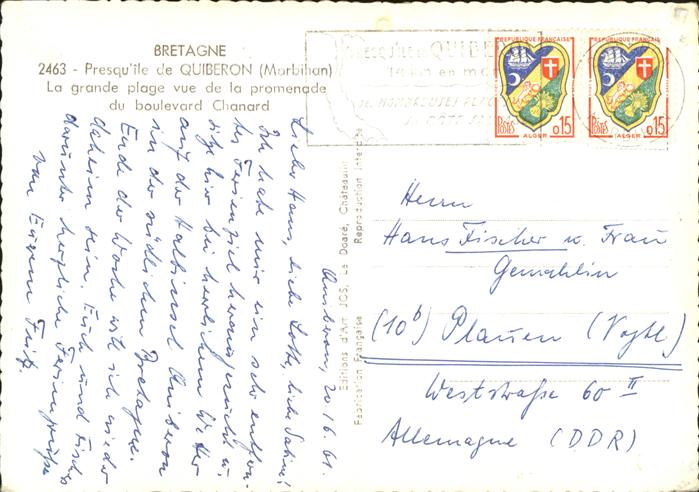 BRETAGNE
2463 - Presqu'île de QUIBERON (Morbihan)
La grande plage vue de la promenade
du boulevard Chanard
PRESQU'ILE DE QUIBERON
14 km en mer
SES NOMBREUSES PLAGES
SA CÔTE
REPUBLIQUE FRANÇAISE
POSTES
ALGER
0,15
REPUBLIQUE FRANÇAISE
POSTES
ALGER
0,15
Quiberon, 20.6.61.
Lieber Hans, liebe Lotte, liebe Sabine!
Ich habe mir ein sehr entfern-
tes Ferienziel herausgesucht u.
sitze hier bei herrlichem Wetter
auf der Halbinsel Quiberon
in der südlichen Bretagne.
Ende der Woche will ich wieder
daheim sein. Euch und
darunter herzliche Feriengrüße
von Eurem Fritz.
Editions d'Art JOS, Le Doaré, Châteaulin
Reproduction Interdite
Fabrication Française
Herrn
Hans Fischer u. Frau
Gemahlin
(10b) Plauen (Vogtl)
Weststraße 60 II
Allemagne (DDR)